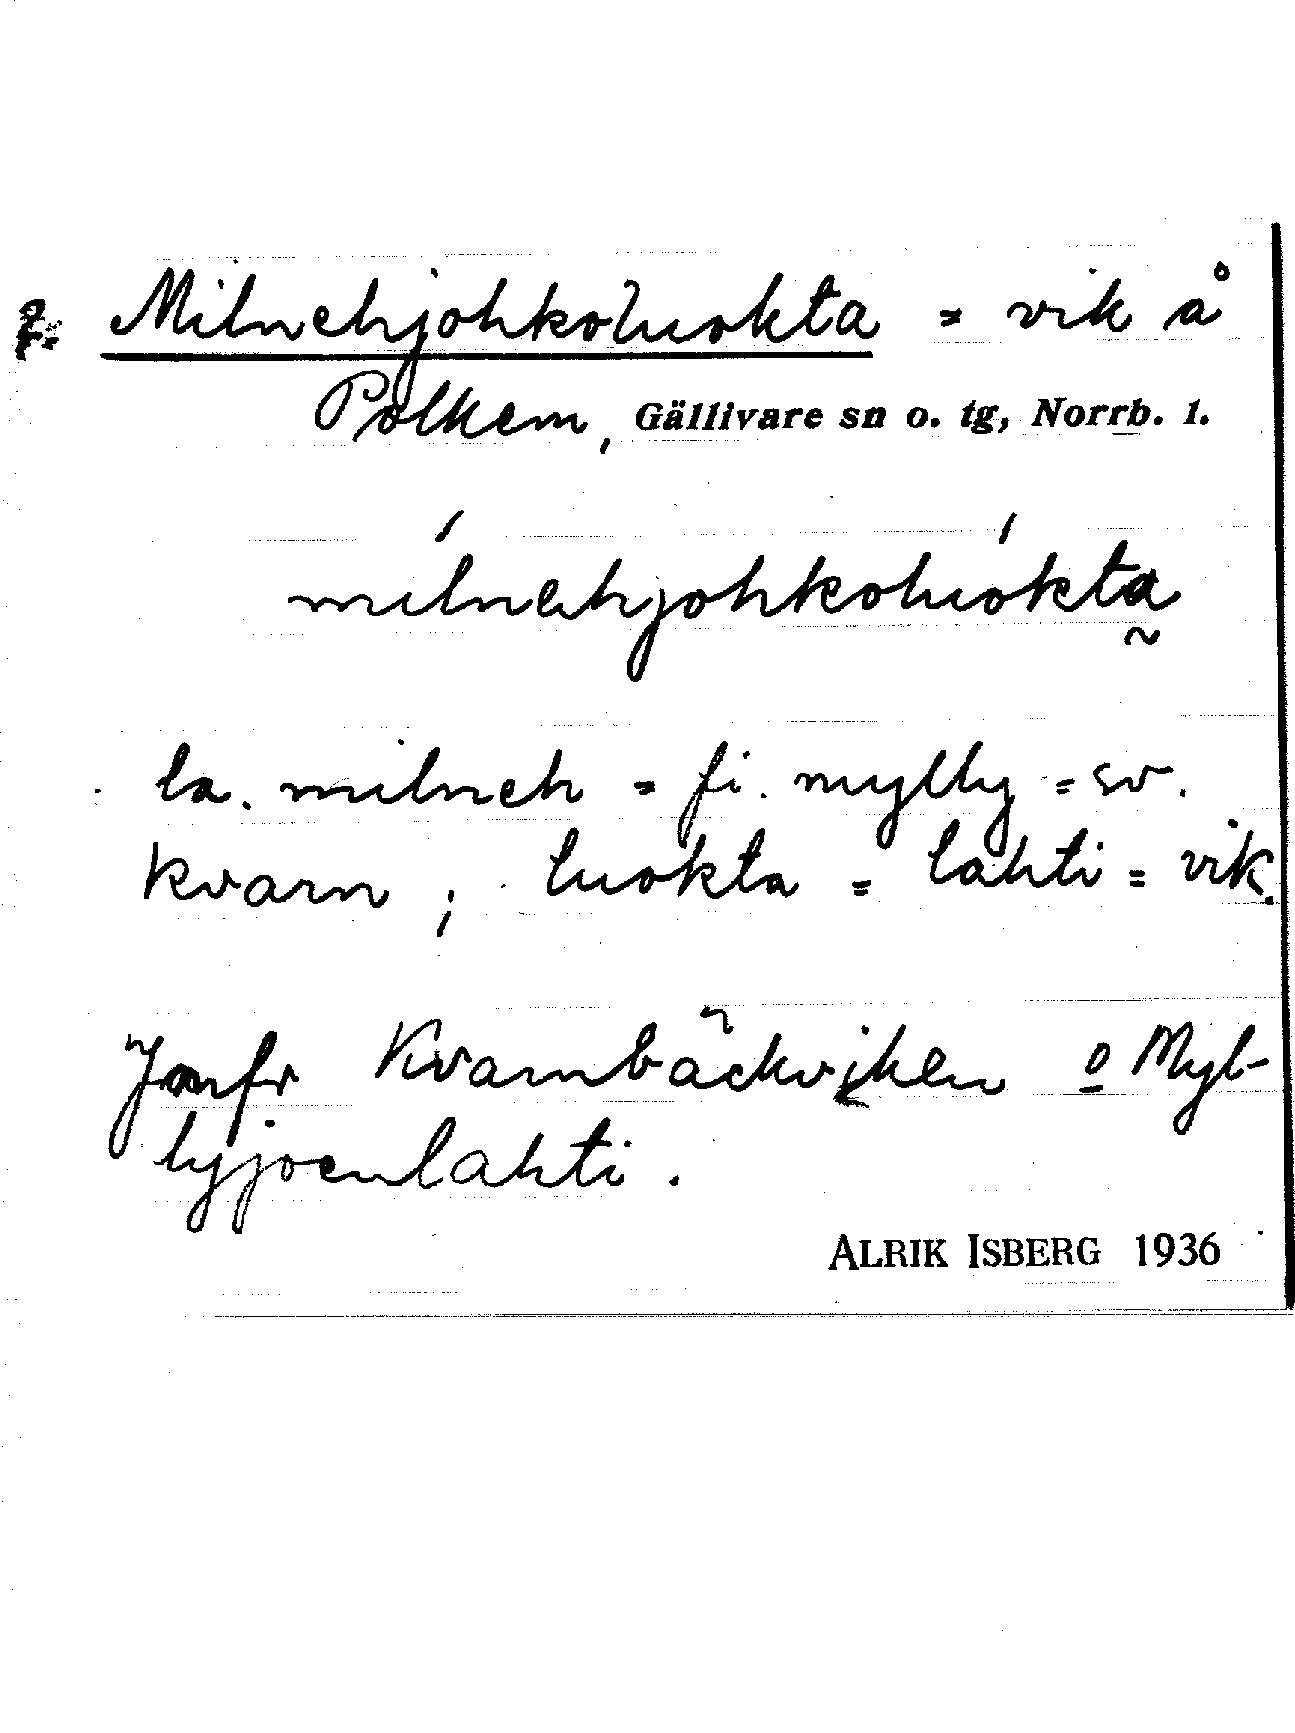 Milnehjohkoluokta = vik å
Polkem, Gällivare sn o. tg, Norrb. l.
milnehjohkoluokta
la. milneh = fi. mylly = sv.
kvarn ; luokta = lahti = vik.
Jmfr Kvarnbäckviken o Myl-
lyjoenlahti.
ALRIK ISBERG 1936